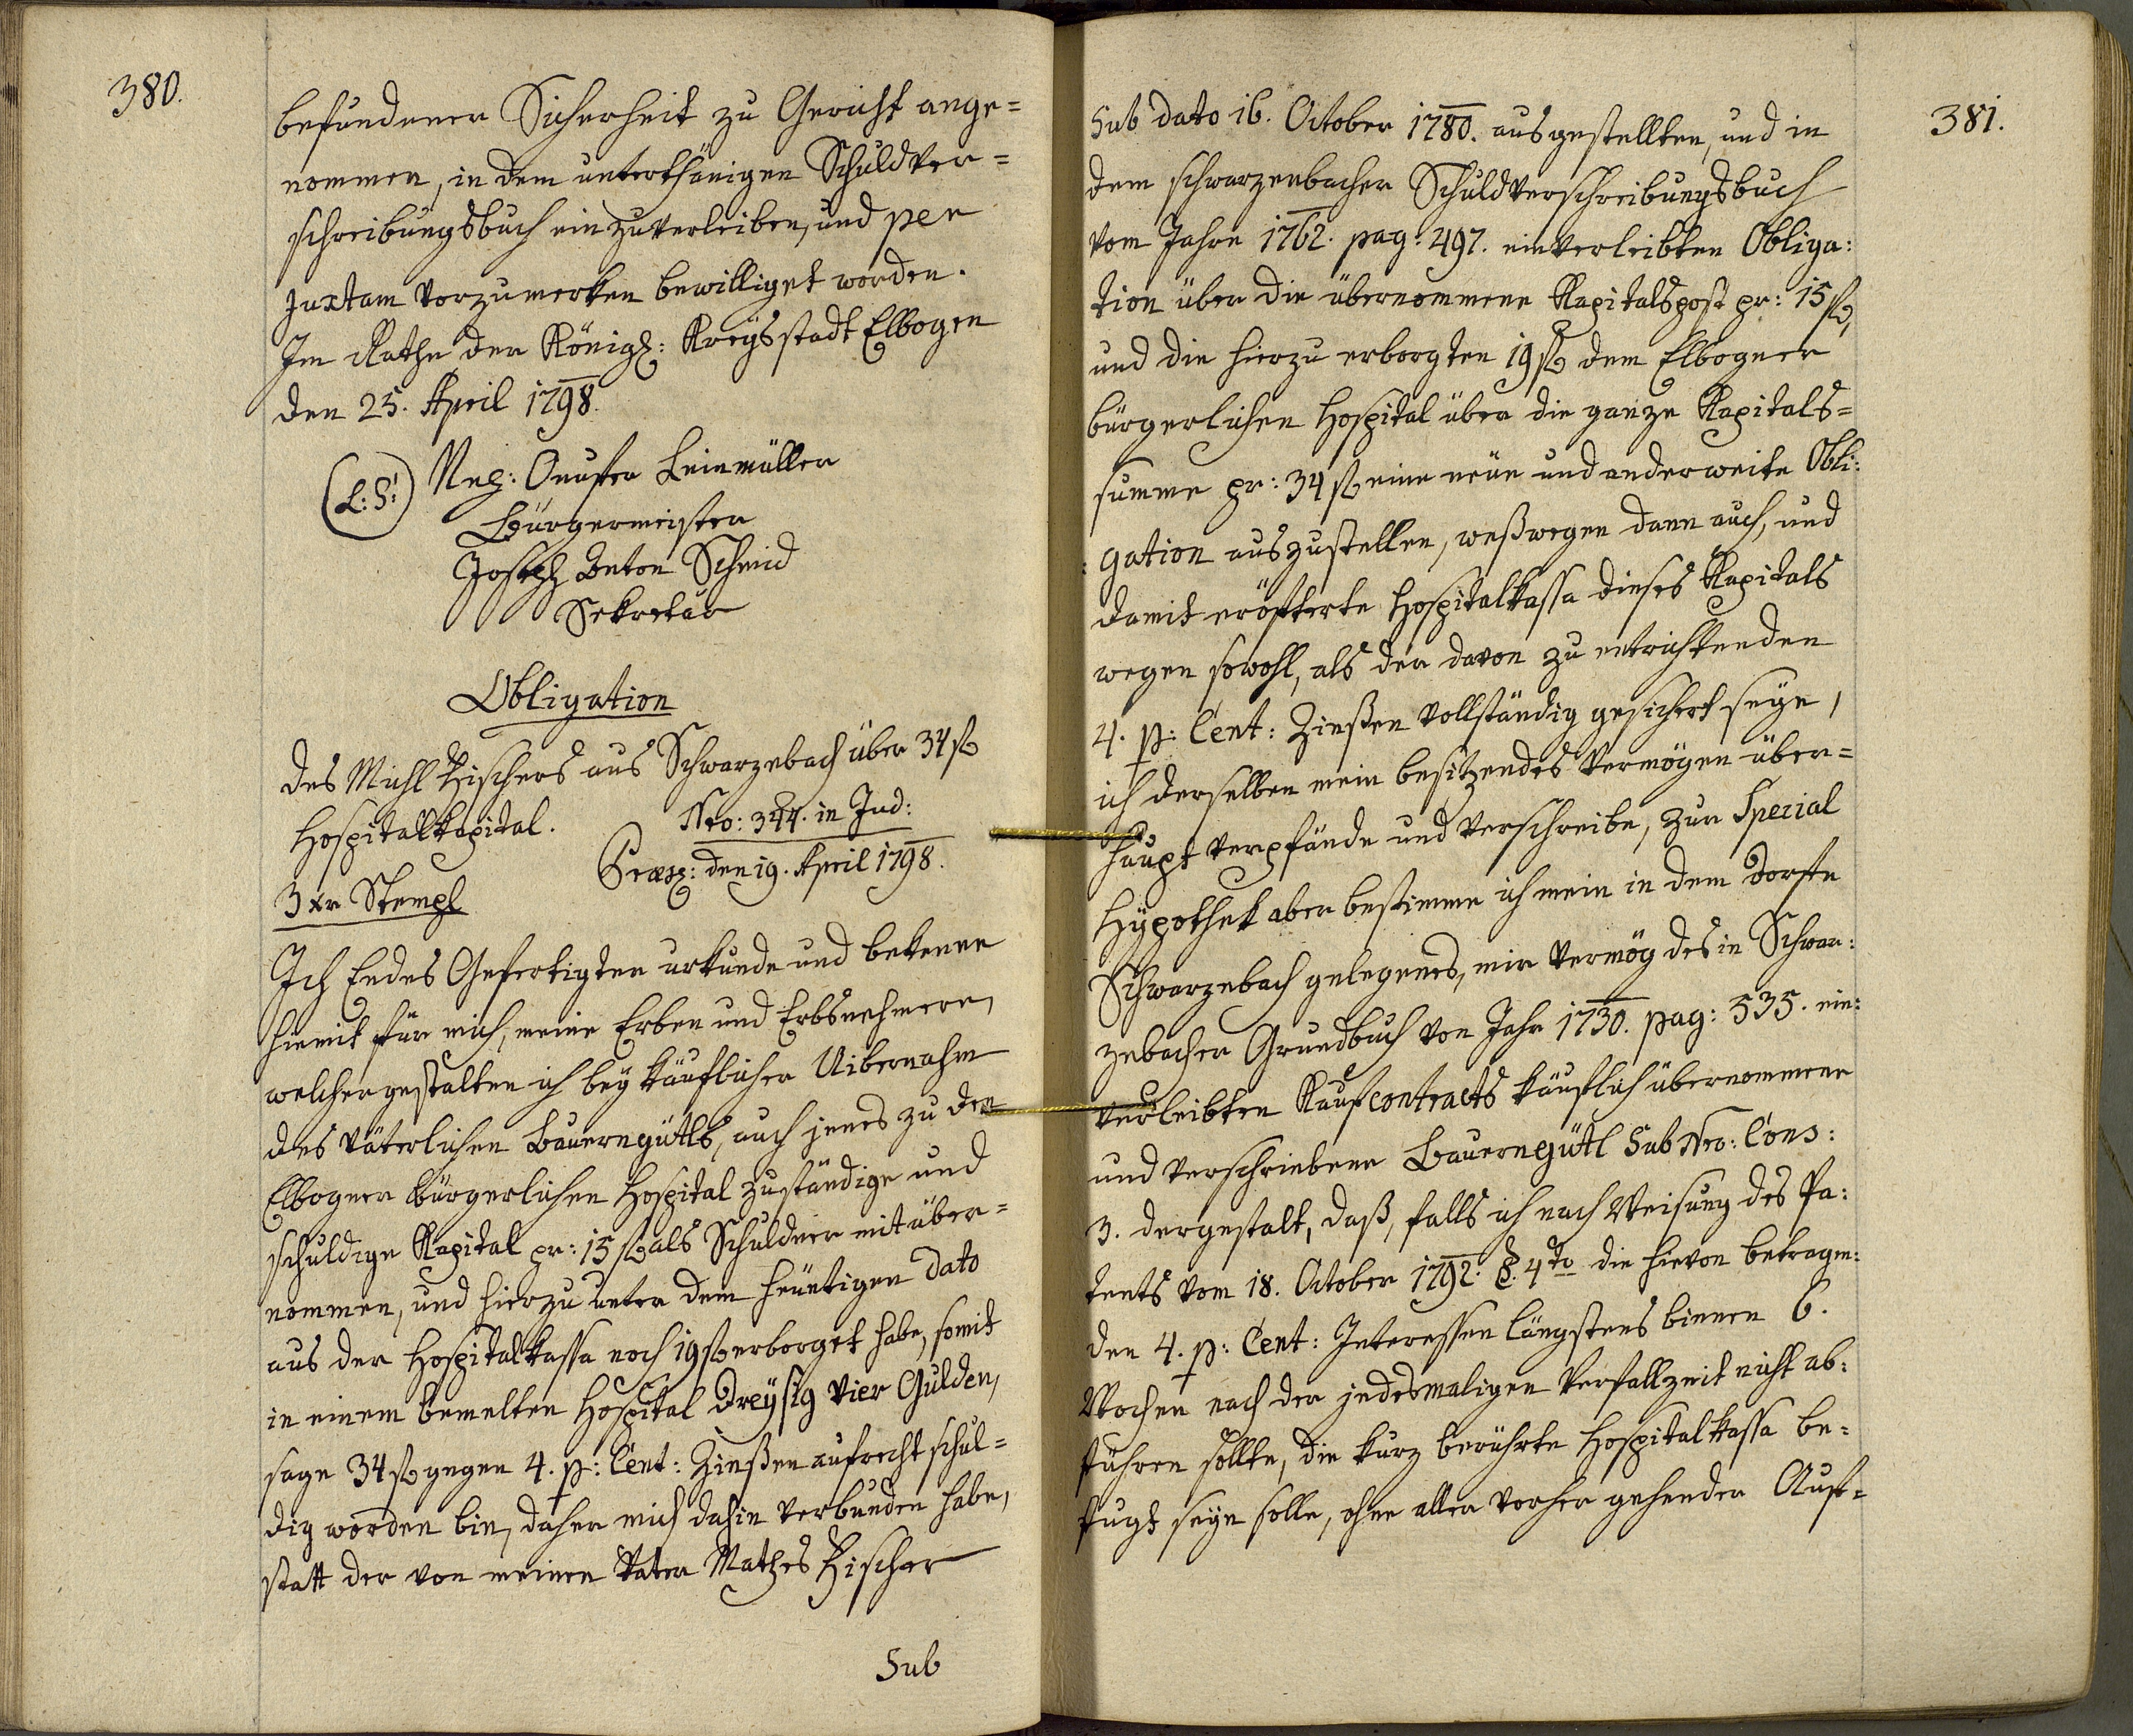 380.
befundener Sicherheit zu Gericht ange=
nommen, in dem unterthänigen Schuldver=
schreibungsbuch einzuverleiben, und per
juxtam vorzumerken bewilliget worden.
Im Rathe der Königl: Kreysstadt Elbogen
den 25. April 1798.
(L:S:)
Onufer Leinmüller
Bürgermeister
Joseph Anton Schmid
Sekretär
Obligation
des Michl Zischers aus Schwarzebach über 34 f
Hospitalkapital.
Nro: 344. in Jud:
Præs: den 19. April 1798.
3 xr Stempl
Ich Endes Gefertigter urkunde und bekenne
hiemit für mich, meine Erben und Erbsnehmern,
welchergestalten ich bey käuflicher Uibernahm
des väterlichen Bauerngüttls, auch jenes zu dem
Elbogner bürgerlichen Hospital zuständige und
schuldige Kapital pr: 15 f als Schuldner mit über=
nommen, und hierzu unter dem heuntigen dato
aus der Hospitalkassa noch 19 f erborget habe, somit
in einem bemelten Hospital Dreysig vier Gulden,
sage 34 f gegen 4. p: Cent: Zinßen aufrecht schul=
dig worden bin, daher mich dahin verbunden habe,
statt der von meinen Vater Mathes Zischer
Sub
381.
Sub dato 16. October 1780. ausgestellten, und in
dem schwarzenbacher Schuldverschreibungsbuch
vom Jahre 1762. pag: 497. einverleibten Obliga:
tion über die übernommene Kapitalspost pr: 15 f,
und die hierzu erborgten 19 f dem Elbogner
bürgerlichen Hospital über die ganze Kapitals=
summe pr: 34 f eine neue und anderweite Obli:
:gation auszustellen, weßwegen dann auch, und
damit eröfterte Hospitalkassa dieses Kapitals
wegen sowohl, als der davon zu entrichtenden
4. p: Cent: Zinßen vollständig gesichert seye,
ich derselben mein besitzendes Vermögen über=
haupt verpfände und verschreibe, zur Special
Hypothek aber bestimme ich mein in dem Dorfe
Schwarzebach gelegenes, mir vermög des in Schwar:
zebacher Grundbuch von Jahr 1730. pag: 535. ein:
verleibten Kaufcontracts käuflich übernommene
und verschriebene Bauerngüttl Sub Nro: Cons:
3. dergestalt, daß, falls ich nach Weisung des Pa:
tents vom 18. October 1792. §. 4to die hievon betragen:
den 4. p: Cent: Interessen längstens binnen 6.
Wochen nach der jedesmaligen Verfallzeit nicht ab:
führen sollte, die kurz berührte Hospitalkassa be=
fugt seyn solle, ohne aller vorher gehender Auf=